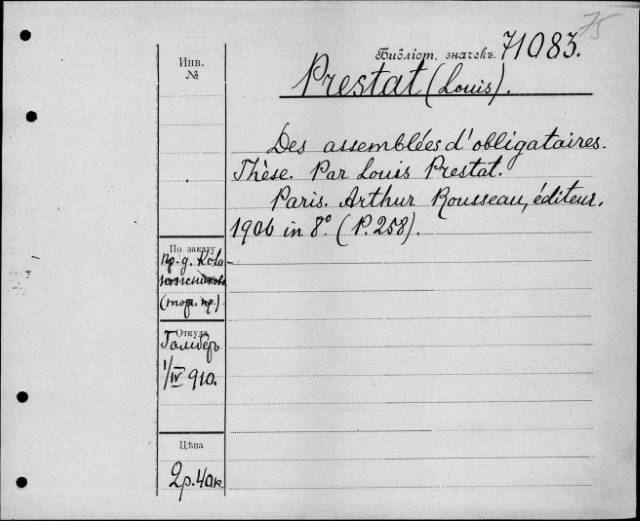 75
Библіот. значекъ. 71083.
Инв.
№
Prestat (Louis).
Des assemblées d'obligataires.
Thèse. Par Louis Prestat.
Paris. Arthur Rousseau, éditeur.
1906 in 8° (P. 258).
По заказу
пр-д.
(торг. пр.)
Откуда
1/IV 910.
Цѣна
2р. 40к.